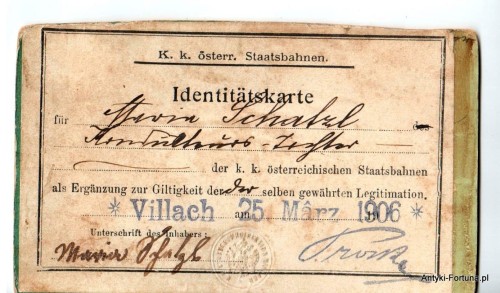 K. k. österr. Staatsbahnen.
Identitätskarte
für Maria Schatzl des
Kondukteurs-Tochter
der k. k. österreichischen Staatsbahnen
als Ergänzung zur Giltigkeit der der selben gewährten Legitimation.
* Villach am 25. März 1906 *
Unterschrift des Inhabers:
Maria Schatzl
Antyki-Fortuna.pl